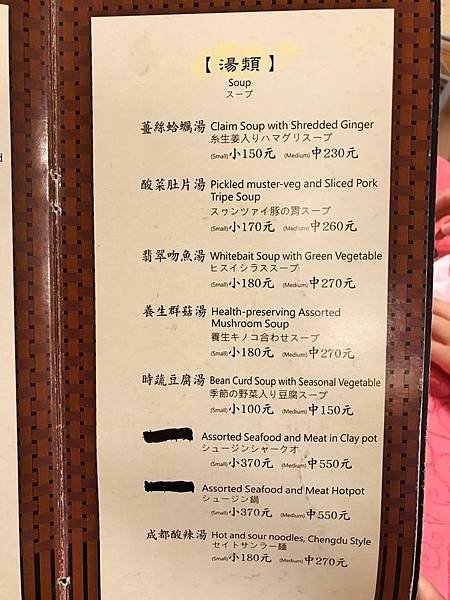 【湯類】
Soup
スープ
薑絲蛤蠣湯 Claim Soup with Shredded Ginger
糸生姜入りハマグリスープ
(Small)小150元 (Medium)中230元
酸菜肚片湯 Pickled muster-veg and Sliced Pork
Tripe Soup
スヮンツァイ豚の胃スープ
(Small)小170元 (Medium)中260元
翡翠吻魚湯 Whitebait Soup with Green Vegetable
ヒスイシラススープ
(Small)小180元 (Medium)中270元
養生群菇湯 Health-preserving Assorted
Mushroom Soup
養生キノコ合わせスープ
(Small)小180元 (Medium)中270元
時蔬豆腐湯 Bean Curd Soup with Seasonal Vegetable
季節の野菜入り豆腐スープ
(Small)小100元 (Medium)中150元
Assorted Seafood and Meat in Clay pot
シュージンシャークオ
(Small)小370元 (Medium)中550元
Assorted Seafood and Meat Hotpot
シュージン鍋
(Small)小370元 (Medium)中550元
成都酸辣湯 Hot and sour noodles, Chengdu Style
セイトサンラー麺
(Small)小180元 (Medium)中270元